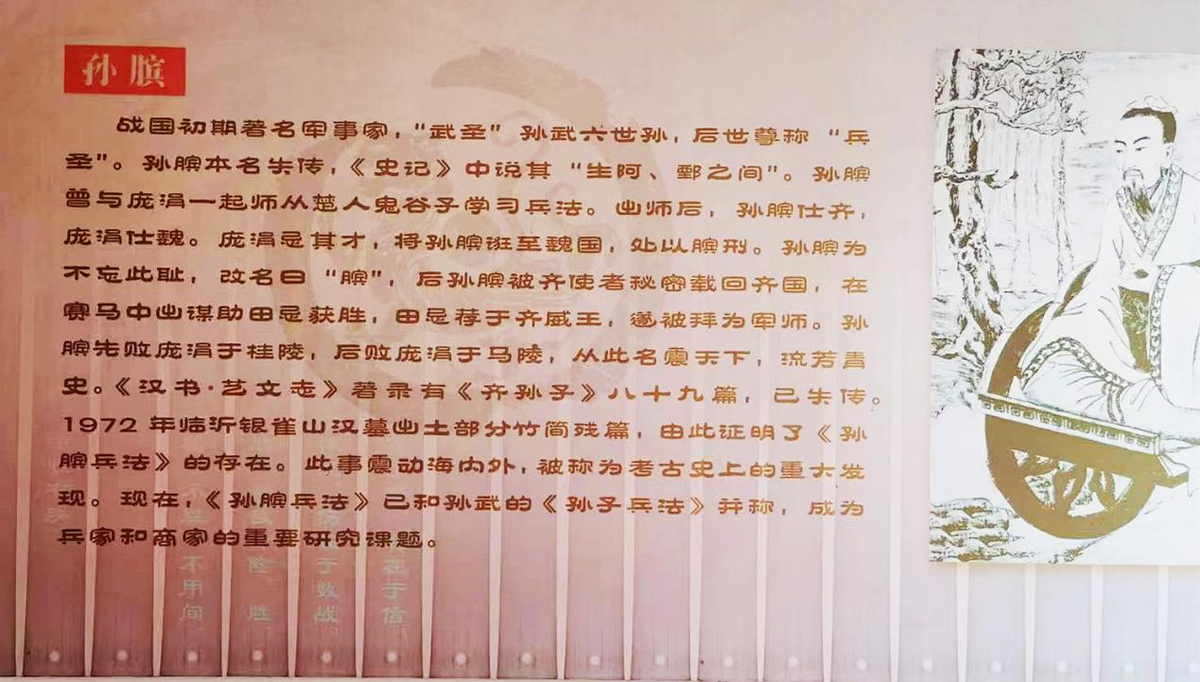 孙膑
战国初期著名军事家，“武圣”孙武六世孙，后世尊称“兵
圣”。孙膑本名失传，《史记》中说其“生阿、鄄之间”。孙膑
曾与庞涓一起师从楚人鬼谷子学习兵法。出师后，孙膑仕齐，
庞涓仕魏。庞涓忌其才，将孙膑诳至魏国，处以膑刑。孙膑为
不忘此耻，改名曰“膑”，后孙膑被齐使者秘密载回齐国，在
赛马中出谋助田忌获胜，田忌荐于齐威王，遂被拜为军师。孙
膑先败庞涓于桂陵，后败庞涓于马陵，从此名震天下，流芳青
史。《汉书·艺文志》著录有《齐孙子》八十九篇，已失传。
1972年临沂银雀山汉墓出土部分竹简残篇，由此证明了《孙
膑兵法》的存在。此事震动海内外，被称为考古史上的重大发
现。现在，《孙膑兵法》已和孙武的《孙子兵法》并称，成为
兵家和商家的重要研究课题。
在于信
于数战
胜
不用间